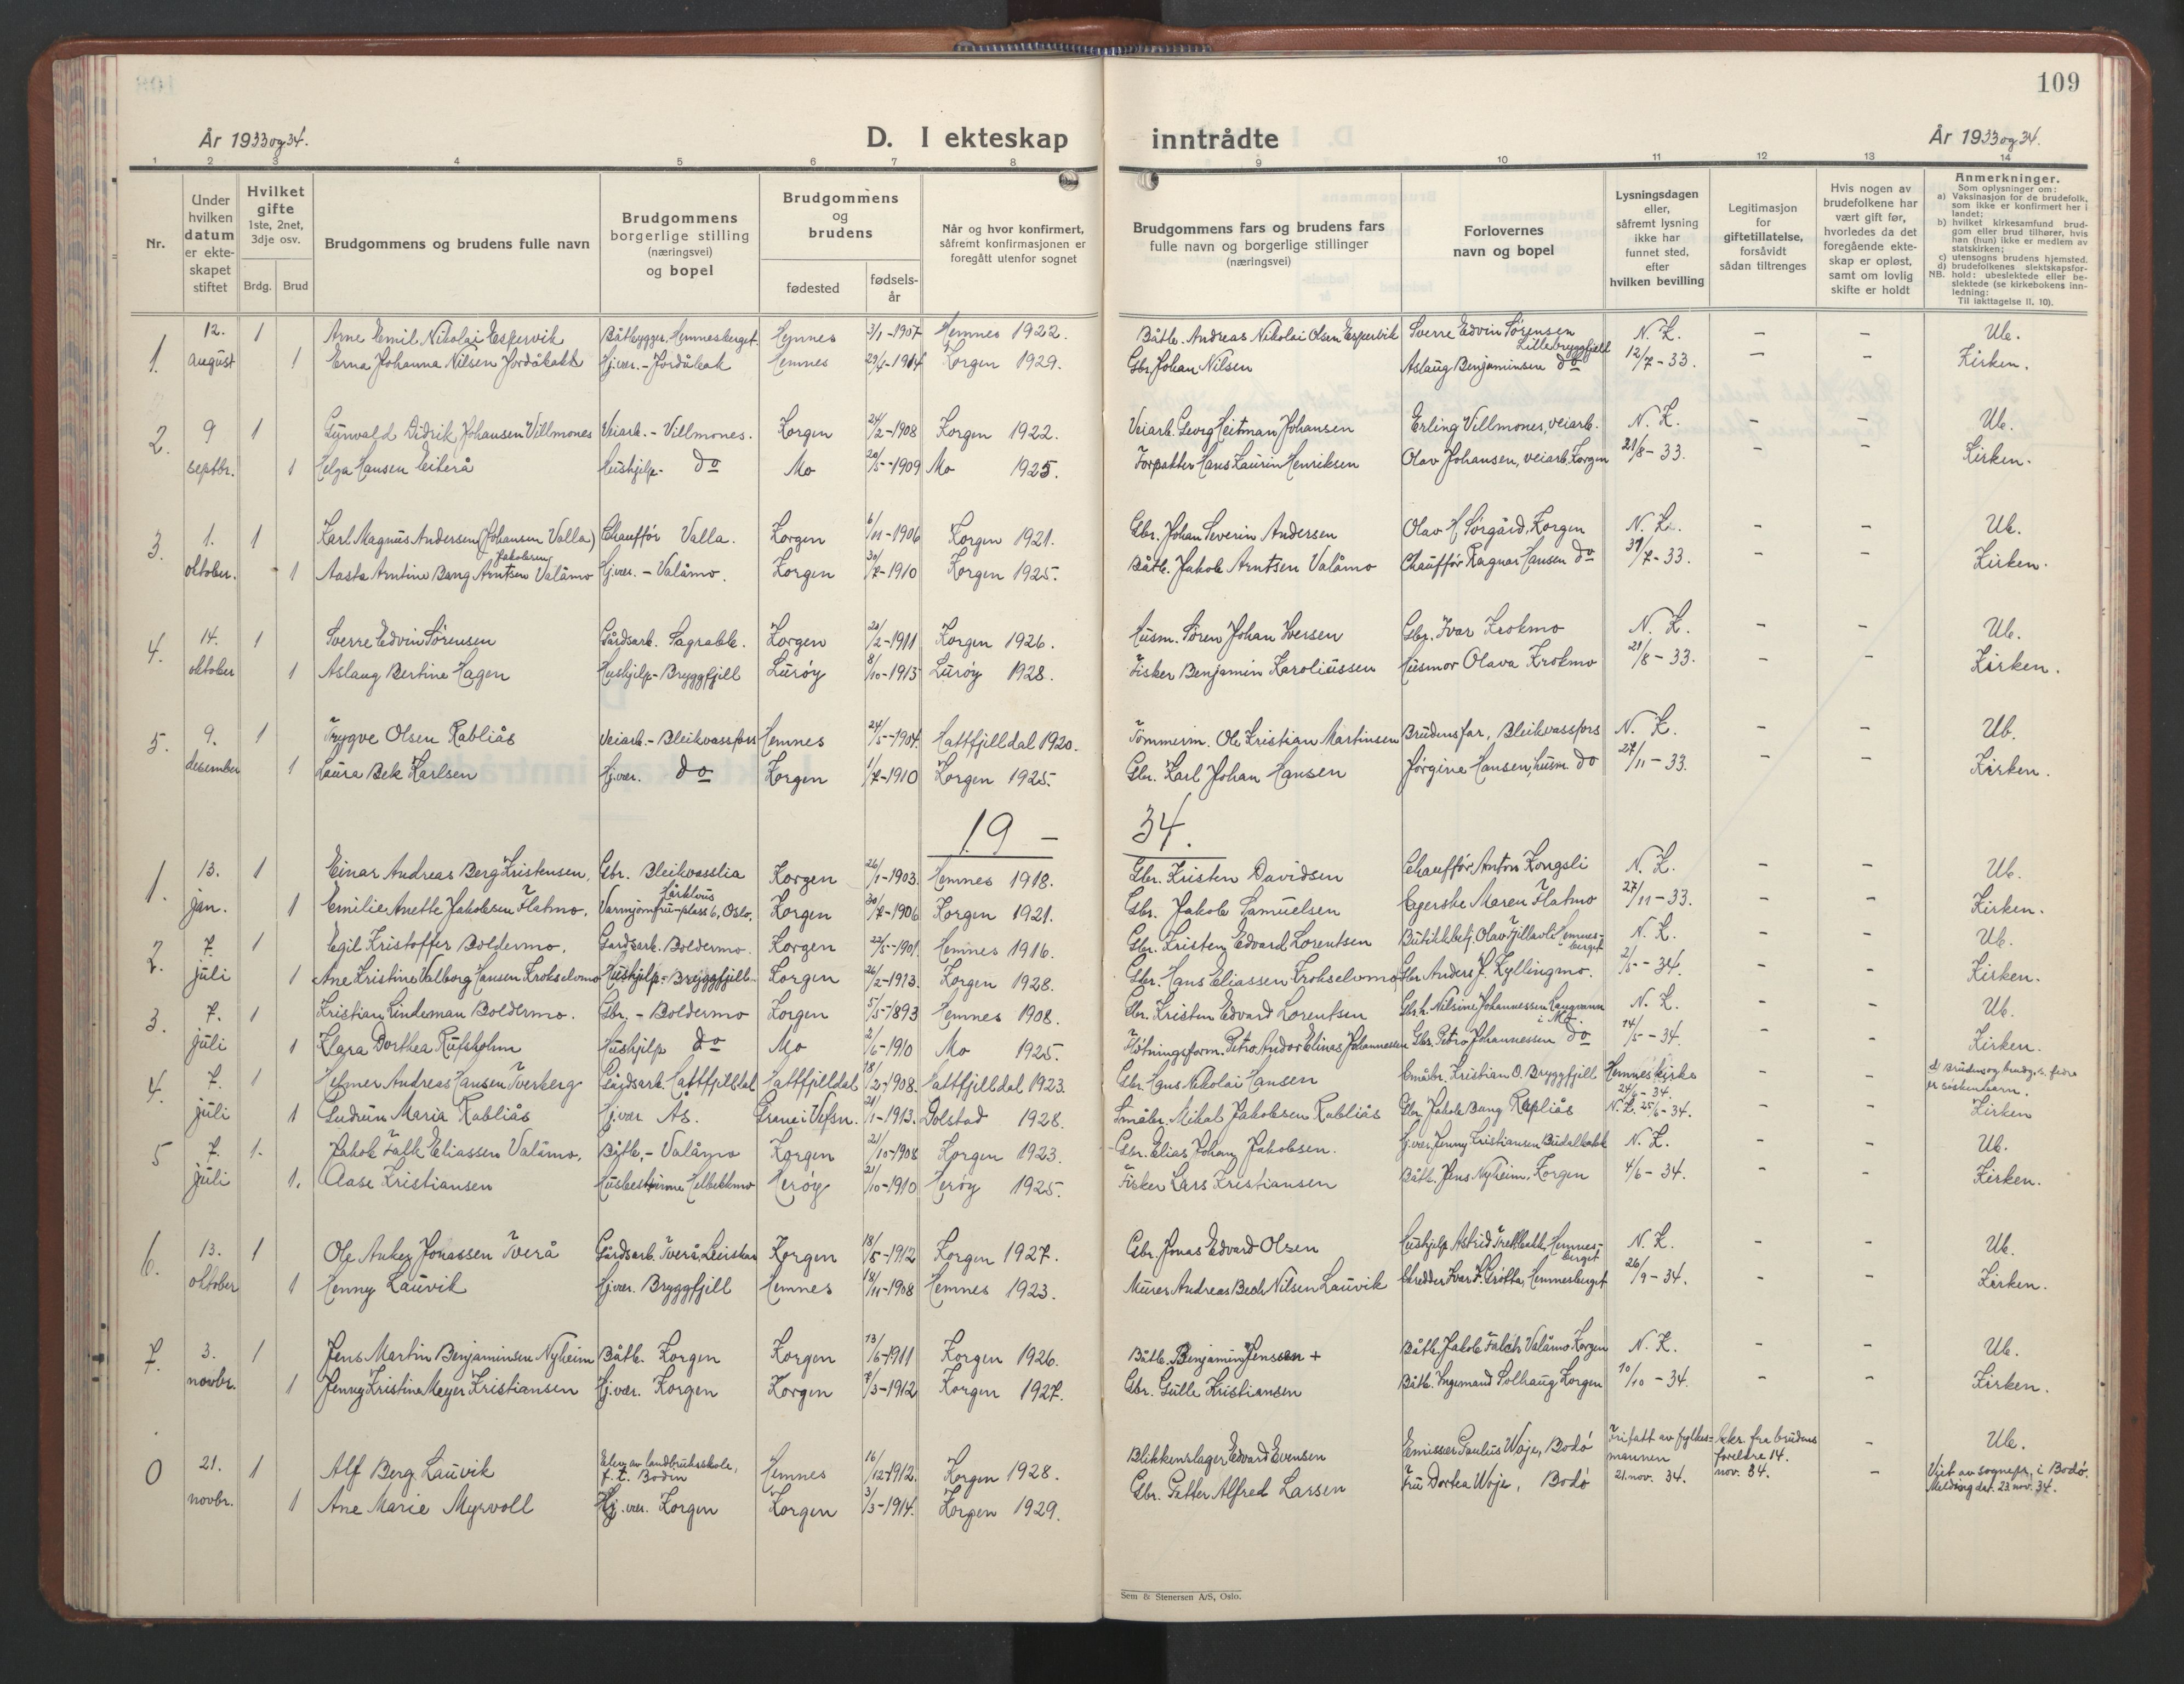 109
År 1933 og 34.
D. I ekteskap inntrådte
År 1933 og 34.
1 2 3 4 5 6 7 8 9 10 11 12 13 14
Nr.
Under hvilken datum er ekteskapet stiftet
Hvilket gifte 1ste, 2net, 3dje osv.
Brdg. Brud
Brudgommens og brudens fulle navn
Brudgommens borgerlige stilling (næringsvei) og bopel
Brudgommens og brudens
fødested
fødselsår
Når og hvor konfirmert, såfremt konfirmasjonen er foregått utenfor sognet
Brudgommens fars og brudens fars fulle navn og borgerlige stillinger (næringsvei)
Forlovernes navn og bopel
Lysningsdagen eller, såfremt lysning ikke har funnet sted, efter hvilken bevilling
Legitimasjon for giftetillatelse, forsåvidt sådan tiltrenges
Hvis nogen av brudefolkene har vært gift før, hvorledes da det foregående ekteskap er opløst, samt om lovlig skifte er holdt
Anmerkninger.
Som oplysninger om:
a) Vaksinasjon for de brudefolk, som ikke er konfirmert her i landet;
b) hvilket kirkesamfund brudgom eller brud tilhører, hvis han (hun) ikke er medlem av statskirken;
c) utensogns brudens hjemsted.
d) brudefolkenes slektskapsforhold: ubeslektede eller beslektede (se kirkebokens innledning:
NB.
Til iakttagelse II. 10).
1. 12. 1 Arne Emil Nikolai Espervik Båtbygger, Hemnesberget. Hemnes 3/1-1907 Hemnes 1922. Båtb. Andreas Nikolai Olsen Espervik Sverre Edvin Sørensen Lillebryggfjell N. K. - - Ub.
august 1 Erna Johanna Nilsen Jordåbakk Hj.vær. - Jordåbak Hemnes 29/4-1914 Korgen 1929. Gbr. Johan Nilsen Aslaug Benjaminsen do 12/7-33. - - Kirken.
2. 9 1 Gunvald Didrik Johansen Villmones Veiarb. - Villmones. Korgen 24/2-1908 Korgen 1922. Veiarb. Georg Heitman Johansen Erling Villmones, veiarb. N. K. - - Ub.
septbr. 1 Helga Hansen Eiterå Hushjelp - do Mo 20/5-1909 Mo 1925. Forpakter Hans Laurin Henriksen Olav Johansen, veiarb, Korgen 21/8-33. - - Kirken.
3. 1. 1 Karl Magnus Andersen (Johansen Valla) Chauffør Valla. Korgen 6/11-1906 Korgen 1921. Gbr. Johan Severin Andersen Olav H. Sørgård, Korgen N. K. - - Ub.
oktober. 1 Aasta Arntine Bang Arntsen Jakobsen Valåmo Hj.vær. - Valåmo. Korgen 30/7-1910 Korgen 1925. Båtb. Jakob Arntsen Valåmo Chauffør Ragnar Hansen do 31/7-33. - - Kirken.
4. 14. 1 Sverre Edvin Sørensen Gårdsarb. Sagrabb. Korgen 20/2-1911 Korgen 1926. Husm. Søren Johan Iversen Gbr. Ivar Krokmo N. K. - - Ub.
oktober 1 Aslaug Bertine Hagen Hushjelp - Bryggfjell Lurøy 8/10-1913 Lurøy 1928. Fisker Benjamin Karoliussen Husmor Olava Krokmo 21/8-33. - - Kirken.
5. 9. 1 Trygve Olsen Rabliås Veiarb. - Bleikvassfors Hemnes 24/5-1904. Hattfjelldal 1920. Tømmerm. Ole Kristian Martinsen Brudens far, Bleikvassfors N. K. - - Ub.
desember 1 Laura Bek Karlsen Hj.vær. do Korgen 1/7-1910 Korgen 1925. Gbr. Karl Johan Hansen Jørgine Hansen, husm. do 27/11-33. - - Kirken.
19 - 34.
1. 13. 1 Einar Andreas Berg Kristensen, Gbr. Bleikvasslia Korgen 26/1-1903. Hemnes 1918. Gbr. Kristen Davidsen Chauffør Anton Kongsli N. K. - - Ub.
jan. 1 Emilie Anette Jakobsen Flatmo. Varmjomfru - plass 6, Oslo. Korgen 30/7-1906 Korgen 1921. Gbr. Jakob Samuelsen Egerske Maren Flatmo 27/11-33. - - Kirken.
2. 7. 1 Egil Kristoffer Boldermo. Gårdsarb. Boldermo. Korgen 22/5-1901. Hemnes 1916. Gbr. Kristen Edvard Lorentsen Butikkbetj. Olav Fjellavli Hemnesberget N. K. - - Ub.
juli 1 Ane Kristine Valborg Hansen Krokselvmo Hushjelp - Bryggfjell Korgen 26/2-1913. Korgen 1928. Gbr. Hans Eliassen Krokselvmo Gbr. Anders P. Kyllingmo. 2/5-34. - - Kirken.
3. 7. 1 Kristian Lindeman Boldermo. Gbr. - Boldermo Korgen 5/5-1893 Hemnes 1908. Gbr. Kristen Edvard Lorentsen Gbr.h. Nilsine Johannessen Langvann i Mo N. K. - - Ub.
juli 1 Klara Dorthea Rufsholm Hushjelp do Mo 2/6-1910 Mo 1925. Fløtningsform. Petro Andor Elinas Johannessen Gbr. Petro Johannessen do 14/5-34. - - Kirken.
4. 7. 1 Helmer Andreas Hansen Tverberg Gårdsarb. Hattfjelldal Hattfjelldal 18/2-1908. Hattfjelldal 1923. Gbr. Hans Nikolai Hansen Småbr. Kristian O. Bryggfjell Hemnes kirke 24/6-34. - - d) Brudens og brudg.s fedre er søskenbarn.
juli 1 Gudrun Maria Rabliås Hj.vær. Ås. Grane i Vefsn. 21/1-1913. Dolstad 1928. Småbr. Mikal Jakobsen Rabliås Gbr. Jakob Bang Rapliås N.K. 25/6-34. - - Kirken
5 7. 1. Jakob Falk Eliassen Valåmo. Båtb. - Valåmo Korgen 21/10-1908 Korgen 1923. Gbr. Elias Johan Jakobsen. Hj.vær. Jenny Kristiansen Budalbakk N. K. - - Ub.
juli 1. Aase Kristiansen Husbestyrerinne Helbekkmo Herøy 21/10-1910 Herøy 1925. Fisker Lars Kristiansen Båtb. Jens Nyheim, Korgen 4/6-34. - - Kirken.
6. 13. 1 Ole Anker Jonassen Tverå Gårdsarb. Tverå, Leirskar Korgen 18/5-1912 Korgen 1927. Gbr. Jonas Edvard Olsen Hushjelp Astrid Trettbakk, Hemnesberget N. K. - - Ub.
oktober 1 Henny Lauvik Hj.vær. Bryggfjell Hemnes 18/11-1908 Hemnes 1923. Murer Andreas Bech Nilsen Lauvik Skredder Ivar F. Grøtta, Hemnesberget 26/9-34. - - Kirken.
7. 3. 1 Jens Martin Benjaminsen Nyheim Båtb. Korgen Korgen 13/6-1911 Korgen 1926. Båtb. Benjamin Jenssen + Båtb. Jakob Falch Valåmo Korgen N. K. - - Ub.
novbr. 1 Jenny Kristine Meyer Kristiansen Hj.vær. Korgen Korgen 7/3-1912 Korgen 1927. Gbr. Gulle Kristiansen Båtb. Ingemand Solhaug Korgen 10/10-34. - - Kirken.
0 21. 1 Alf Berg Lauvik Elev av landbruksskole, f.t. Bodin Hemnes 16/12-1912. Korgen 1928. Blikkenslager Edvard Evensen Emissær Paulus Woje, Bodø Frifatt av fylkesmannen 21. nov. 34. Erkr. fra brudens foreldre 14. nov. 34. - Ub.
novbr. 1 Ane Marie Myrvoll Hj.vær. Korgen Korgen 3/3-1914. Korgen 1929. Gbr. Petter Alfred Larsen Fru Dortea Woje, Bodø - Viet av sognepr. i Bodø. Melding dat. 23. nov. 34.
Sem & Stenersen A/S, Oslo.